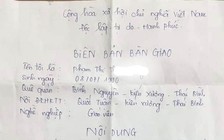 Cộng hòa xã hội chủ nghĩa Việt Nam
Độc lập tự do hạnh phúc
BIÊN BẢN BÀN GIAO
Tên tôi là Phạm Thị
Sinh ngày
Quê quán: Bình Nguyên - Kiến Xương - Thái Bình
Nơi ĐKHKTT: Kiến Xương - Thái Bình
Nghề nghiệp: Giáo viên
NỘI DUNG